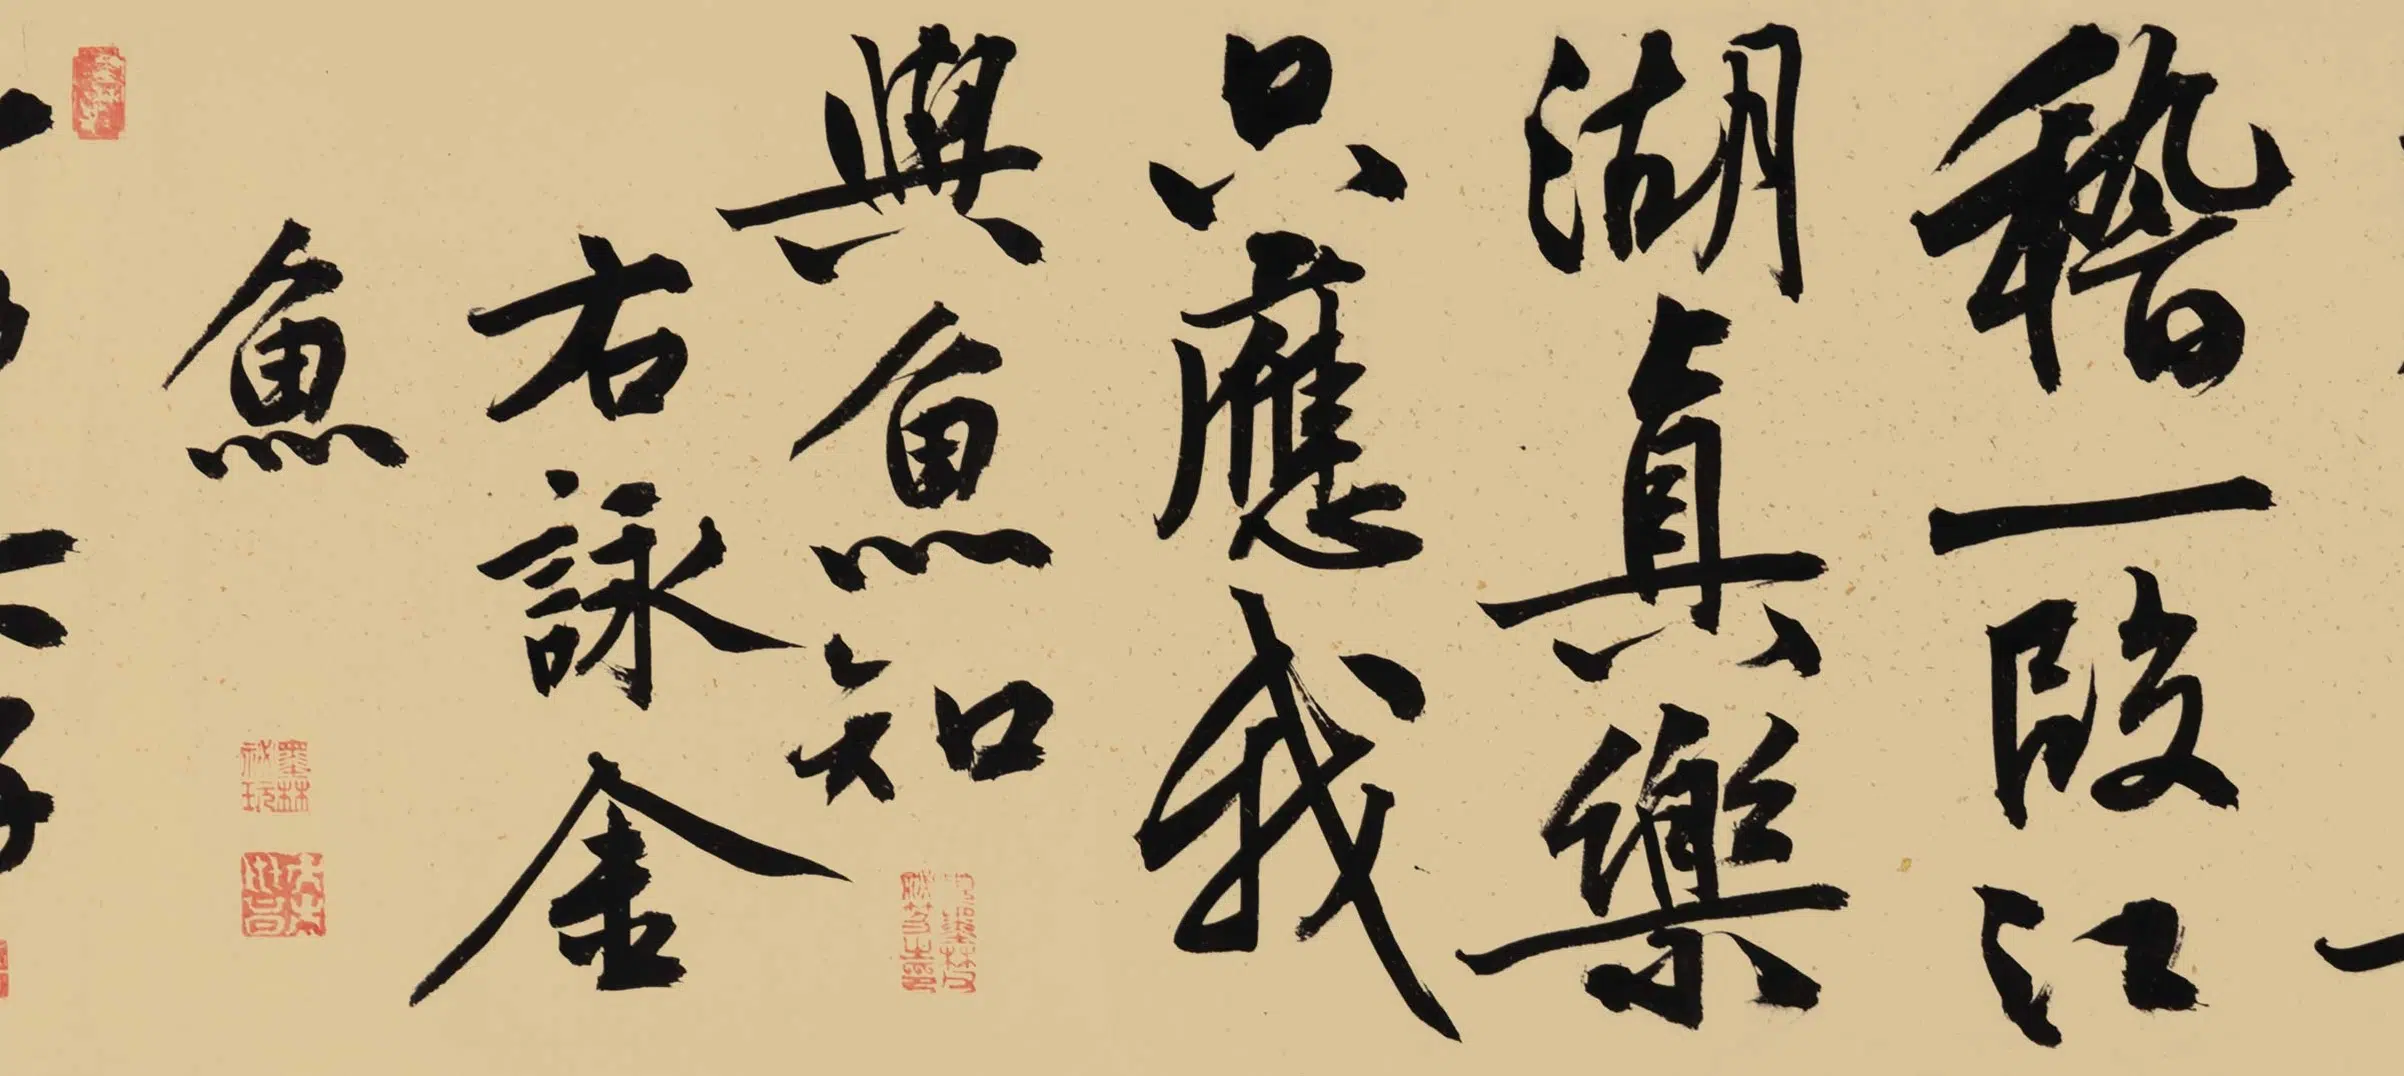 稽一段江
湖真樂
只應我
與魚知
右詠金
魚
墨林
祕玩